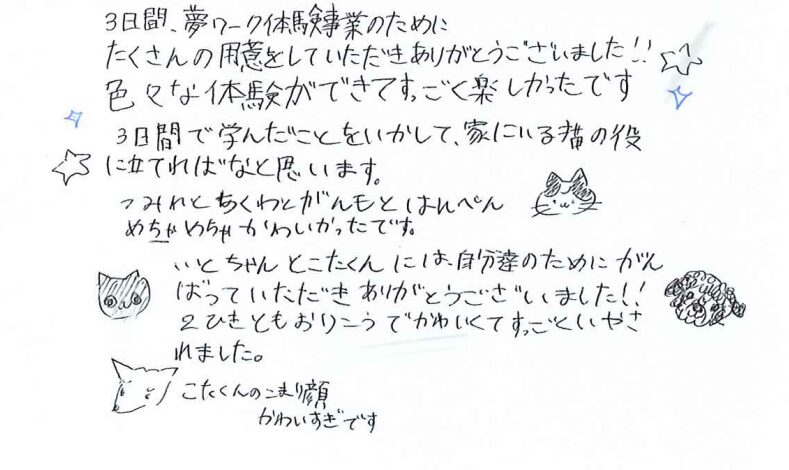 3日間、夢ワーク体験事業のために
たくさんの用意をしていただきありがとうございました!!
色々な体験ができてすっごく楽しかったです
3日間で学んだことをいかして、家にいる猫の役
に立てればなと思います。
つみれとちくわとがんもとはんぺん
めちゃめちゃかわいかったです。
いとちゃんとこたくんには、自分達のためにがん
ばっていただきありがとうございました!!
2ひきともおりこうでかわいくてすっごいいやさ
れました。
こたくんのこまり顔
かわいすぎです